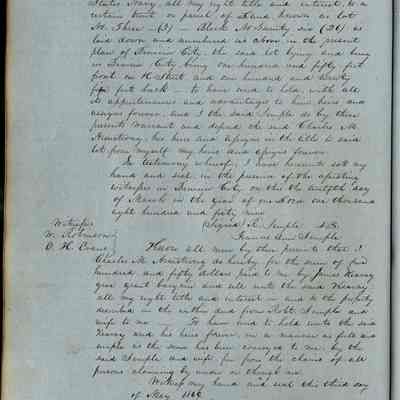 States Navy, all my right title and interest, to a
certain tract or parcel of Land known as lot
No. Three - (3) - Block No Twenty six (26) as
laid down and numbered as above in the present
plan of City, the said lot lying and being
in City, being one hundred and fifty feet
front on H Street and one hundred and twenty
feet back - to have and to hold, with all
its appurtenances and advantages to him heirs and
assigns forever, and I the said Semple do by these
presents warrant and defend the said Charles M.
Armstrong, his heirs and assigns in the title to said
lot from myself my heirs and assigns forever.
In testimony whereof, I have hereunto set my
hand and seal in the presence of the
witnesses in City on this the twelfth day
of March in the year of our Lord one thousand
eight hundred and fifty nine
Witnesses Signed R. Semple
W. Robinson Semple
O. H. Know all men by these presents that I
Charles M. Armstrong do hereby for the sum of five
hundred and fifty dollars paid to me by James
give grant bargain and sell unto the said
all my right title and interest in and to the property
described in the within deed from Robt. Semple and
wife to me - To have and to hold unto the said
and his heirs forever, in a manner as full and
ample as the same has been conveyed to me by the
said Semple and wife, free from the claims of all
persons claiming by under or through me.
Witness my hand and seal this third day
of May